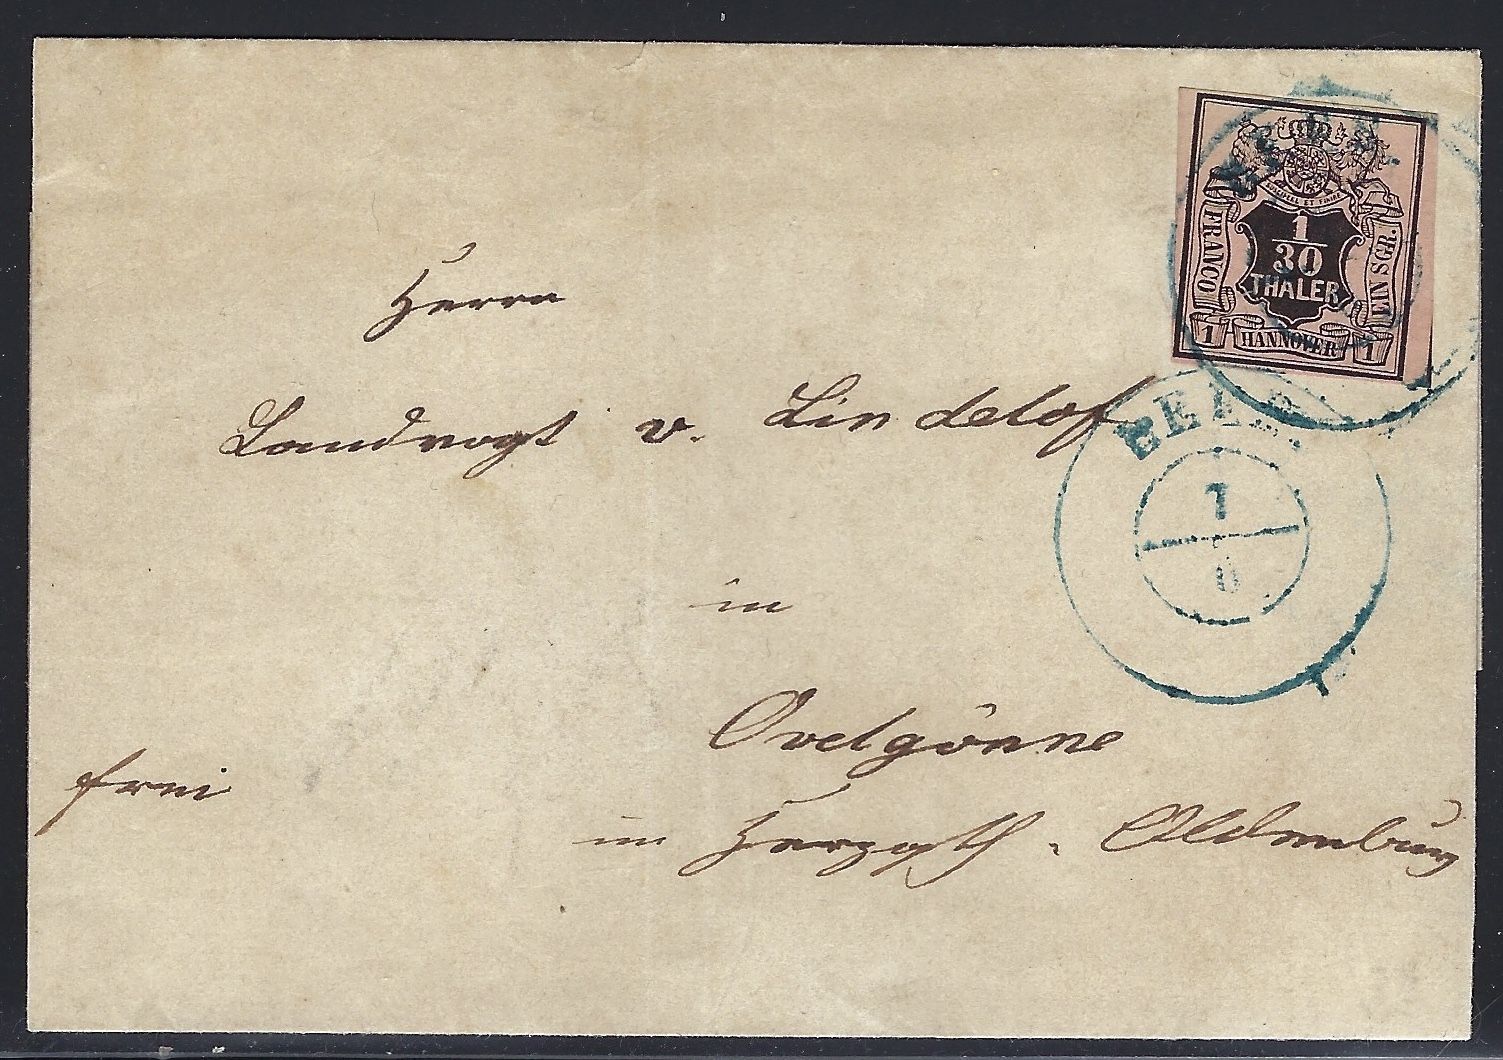 SUSCIPERE ET FINIRE
FRANCO
1
30
THALER
EIN SGR.
1 HANNOVER 1
7
Herrn
Landvogt v. Lindelof
in
Ovelgönne
frei
im Herzogth. Oldenburg